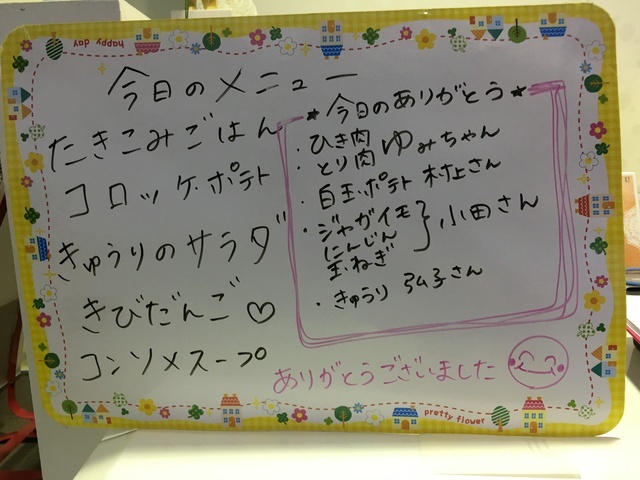 happy day
今日のメニュー
たきこみごはん
コロッケ・ポテト
きゅうりのサラダ
きびだんご♡
コンソメスープ
★今日のありがとう★
・ひき肉
・とり肉 ゆみちゃん
・白玉・ポテト 村上さん
・ジャガイモ
にんじん
玉ねぎ
} 小田さん
・きゅうり 弘子さん
ありがとうございました
pretty flower